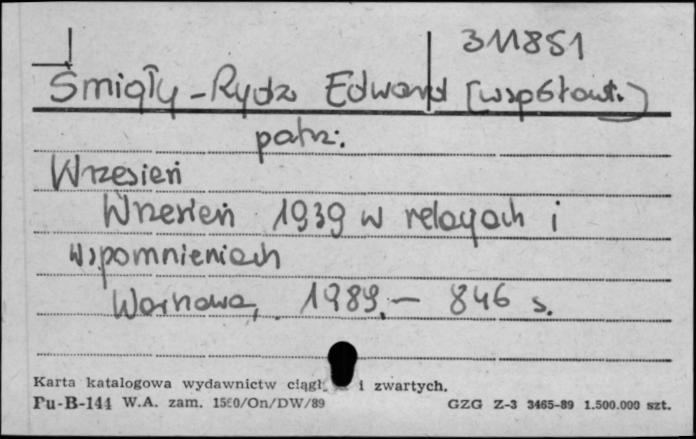 311851
Śmigły-Rydz Edward [współaut.]
patrz:
Wrzesień
Wrzesień 1939 w relacjach i
wspomnieniach
Warszawa, 1989. - 846 s.
Karta katalogowa wydawnictw ciągł. i zwartych.
Pu-B-144 W.A. zam. 1580/On/DW/89 GZG Z-3 3465-89 1.500.000 szt.